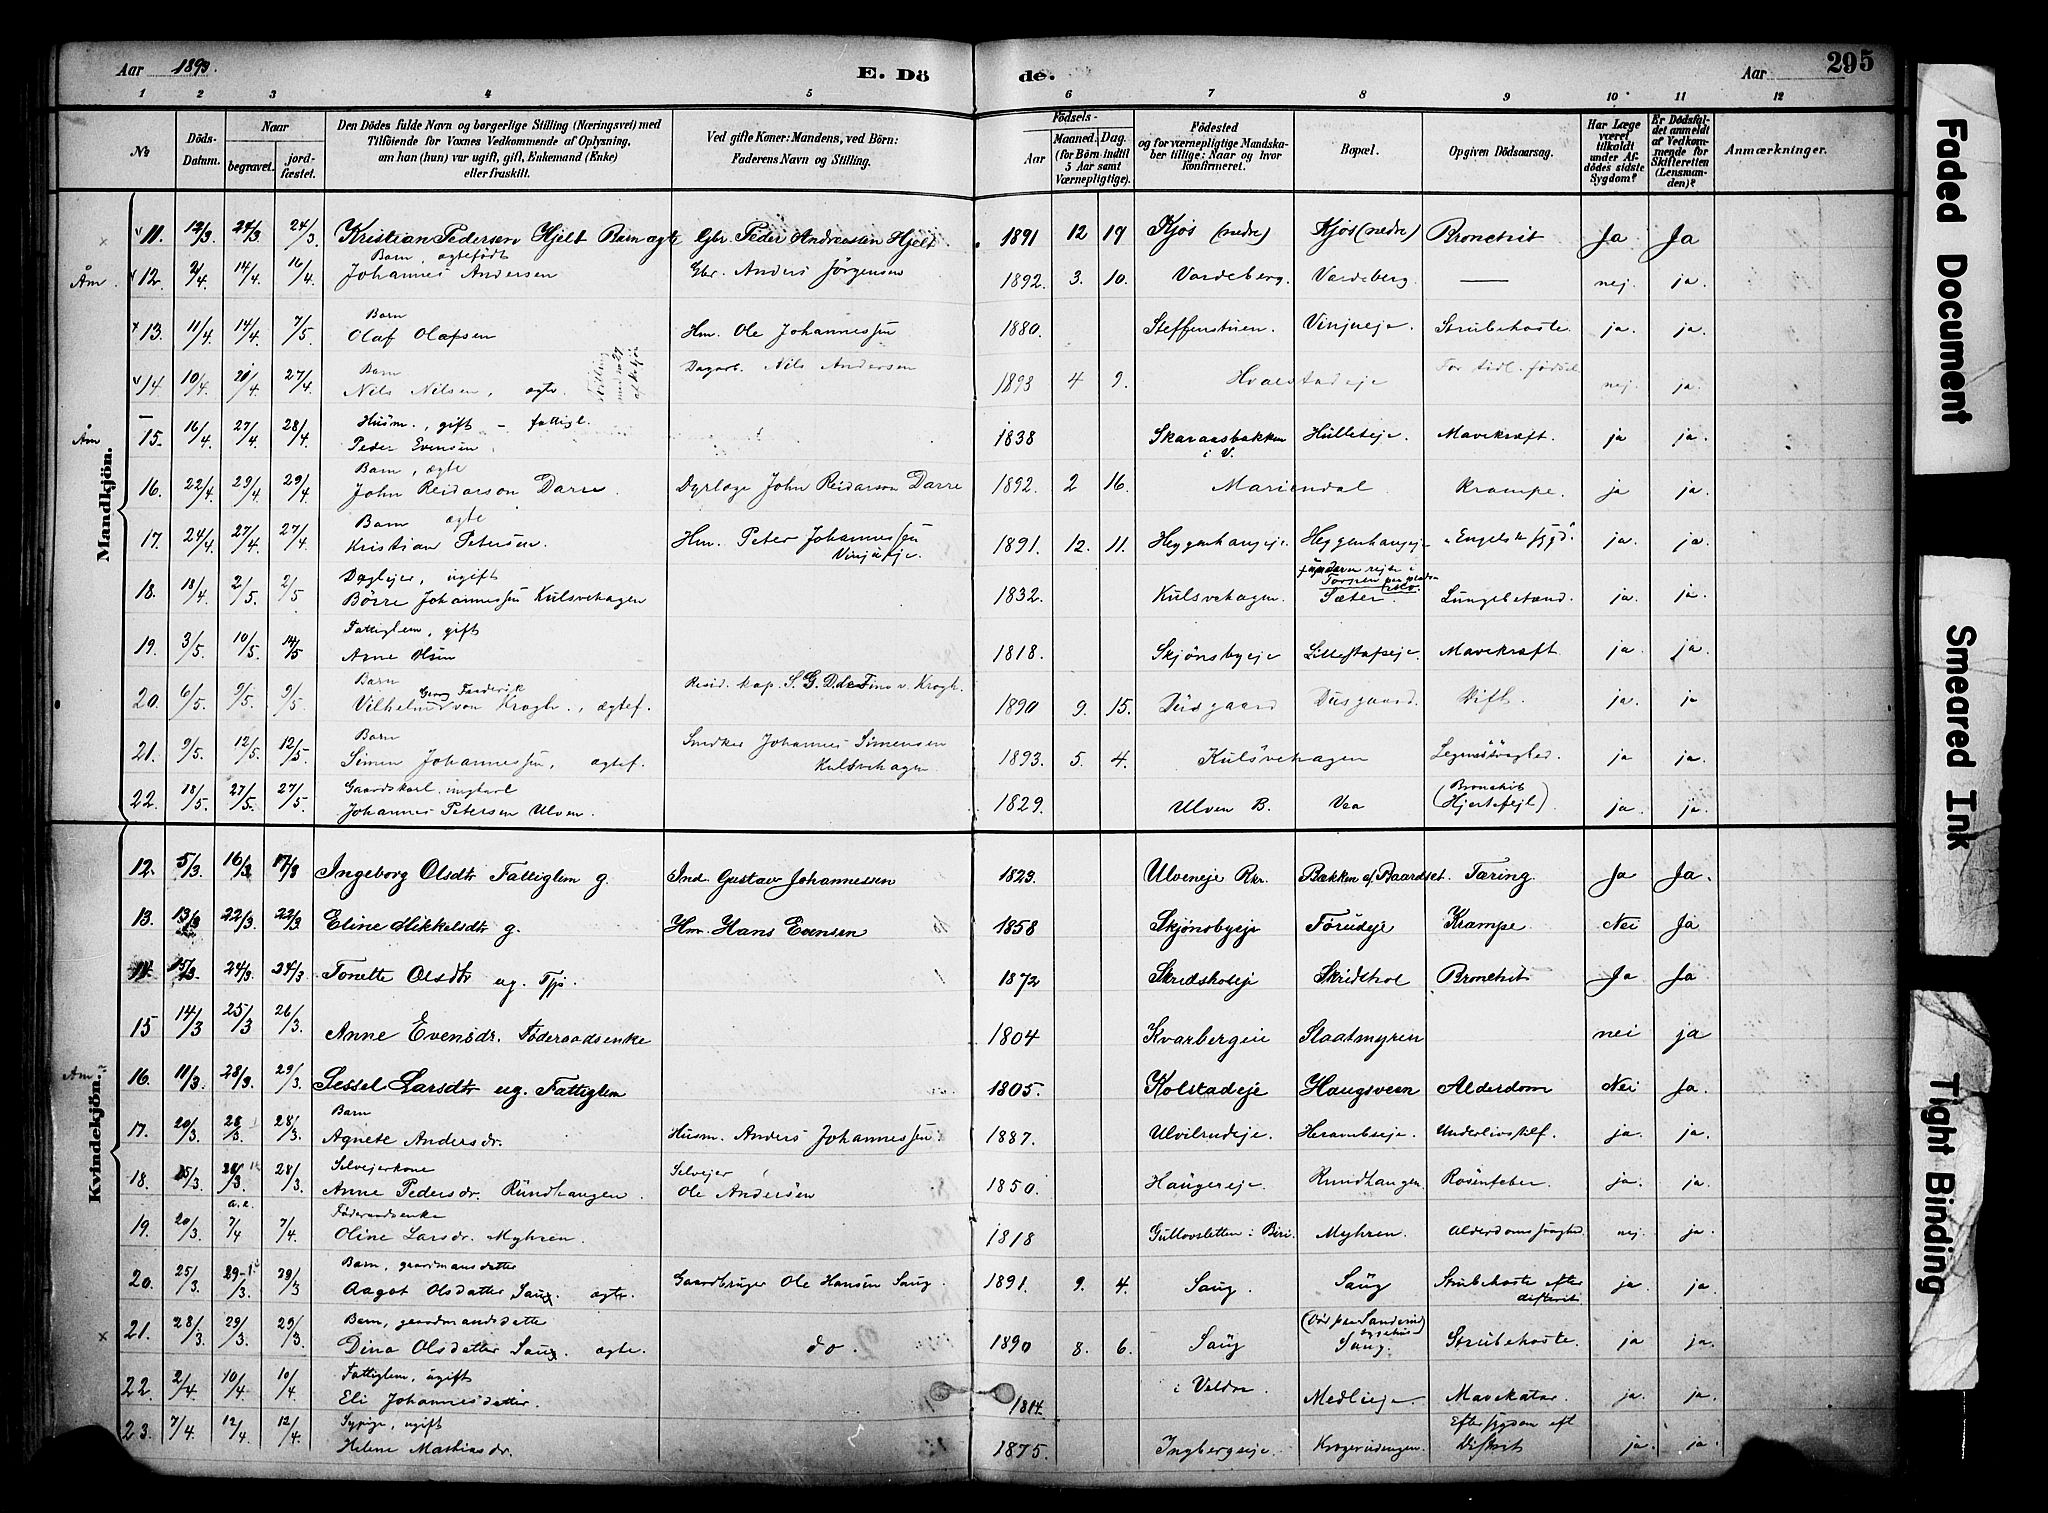 Aar 1893.
E. Dö
de.
Aar
295
1 2 3 4 5 6 7 8 9 10 11 12
No
Döds-Datum.
Naar
begravet.
jordfæstet.
Den Dödes fulde Navn og borgerlige Stilling (Næringsvei) med Tilföiende for Voxnes Vedkommende af Oplysning, om han (hun) var ugift, gift, Enkemand (Enke) eller fraskilt.
Ved gifte Koner: Mandens, ved Börn: Faderens Navn og Stilling.
Födsels-
Aar
Maaned. Dag.
(for Börn indtil 5 Aar samt Værnepligtige).
Födested og for værnepligtige Mandskaber tillige: Naar og hvor konfirmeret.
Bopæl.
Opgiven Dödsaarsag.
Har Læge været tilkaldt under Afdödes sidste Sygdom?
Er Dödsfaldet anmeldt af Vedkommende for Skifteretten (Lensmanden)?
Anmærkninger.
Mandkjön.
11. 12/3. 24/3 24/3. Kristian Pedersen Hjelt Barn ægte Gbr. Peder Andreassen Hjelt. 1891 12 19 Kjos (nedre) Kjos (nedre) Bronchit Ja Ja
Åm. 12. 2/4. 14/4. 16/4. Barn, ægtefødt
Johannes Andersen Gbr. Anders Jörgensen 1892. 3. 10. Vardeberg. Vardeberg. — nej. ja.
13. 11/4. 14/4. 7/5. Barn
Olaf Olafsen Hm. Ole Johannessen 1880. Steffenstuen. Vinjueje. Strubehoste. ja. ja.
14 10/4. 20/4 27/4 Barn
Nils Nilsen, ægte. Dagarb. Nils Andersen 1893 4 9. Hvalstadeje For tidl. fødsel nej. ja.
Åm 15. 16/4. 27/4 28/4 Husm., gift - fattigl.
Peder Evensen. 1838 Skaraasbakken i V. Hulleteje. Mavekræft. ja ja.
16. 22/4. 29/4. 29/4. Barn, ægte
John Reidarson Darre. Dyrlæge John Reidarson Darre 1892. 2 16. Mariendal Krampe. ja ja.
17. 24/4. 27/4. 27/4. Barn ægte
Kristian Petersen. Hm. Peter Johannessen
Vinjueje 1891. 12. 11. Heggenhaugeje. Heggenhaugeje. "Engelsk syge". ja. ja.
18. 18/4. 2/5. 2/5. Daglejer, ugift
Börre Johannessen Kulsvehagen 1832. Kulsvehagen. Sæter. Lungebetænd. ja. ja.
19. 3/5. 10/5. 14/5 Fattiglem, gift
Arne Olsen 1818. Skjönsbyeje Lillestafseje. Mavekræft ja ja.
20. 6/5. 9/5. 9/5. Barn
Vilhelm Georg Frederik von Krogh., ægtef. Resid. kap. S. G. D. de Fine v. Krogh. 1890 9. 15. Dusgaard Dusgaard. Dift. ja. ja
21. 9/5. 12/5. 12/5. Barn
Simen Johannessen, ægtef. Snedker Johannes Simensen
Kulsvehagen. 1893. 5. 4. Kulsvehagen Legemssvaghed. ja ja.
22. 18/5. 27/5. 27/5. Gaardskarl. ungkarl
Johannes Petersen Ulven. 1829. Ulven B. Vea Bronchit (Hjertefejl) ja. ja.
Kvindekjön.
12. 5/3. 16/3 17/3 Ingeborg Olsdtr Fattiglem g. Ind. Gustav Johannessen 1823. Ulveneje Rkr. Bakken af Baardset. Tæring. Ja Ja.
13. 13/3 22/3. 22/3. Eline Mikkelsdtr g. Hm. Hans Evensen 1858 Skjønsbyeje Førudeje Krampe. Nei Ja
14. 15/3. 24/3. 24/3 Tonette Olsdtr ug. Tjp. 1872 Skridskoleje Skridskol Bronchit Ja Ja
15 14/3 25/3 26/3. Anne Evensdr. Föderaadsenke 1804 Kvarbergeie Slaatmyren nei ja
Åm. 16. 11/3. 28/3. 29/3. Sessel Larsdtr ug. Fattiglem 1805. Kolstadeje Haugsveen Alderdom Nei Ja.
17. 20/3. 28/3. 28/3. Barn
Agnete Andersdr. Husm. Anders Johannessen 1887. Ulvilrudeje. Herambseje. Underlivstilf. ja. ja.
18. 15/3. 28/3. 28/3. Selvejerkone
Anne Pedersdr. Rundhaugen. Selvejer
Ole Andersen 1850. Haugereje. Rundhaugen. Rosenfeber. ja. ja.
19. 20/3. 7/4 7/4. Föderaadsenke
Oline Larsdr. Myhren. 1818 Gullovsletten i Biri. Myhren. Alderdomssvaghed nej. ja.
20. 25/3. 29/3. 29/3 Barn, gaardmansdatter
Aagot Olsdatter Saug. ægte. Gaardbruger Ole Hansen Saug. 1891. 9. 4. Saug. Saug Strubehoste efter difterit. ja ja.
21. 28/3. 29/3. 29/3. Barn, gaardmandsdatter
Dina Olsdatter Saug. ægte. do. 1890 8. 6. Saug Saug. Strubehoste. ja ja.
22. 2/4. 10/4. 10/4 Fattiglem, ugift
Eli Johannesdatter. 1814. i Veldre Medlieje. Mavekatar. ja. ja.
23. 7/4. 12/4. 12/4. Sypige, ugift
Helene Mathiasdr. 1875. Ingbergseje. Eftersygdom eft Difterit ja. ja.
Faded Document
Smeared Ink
Tight Binding